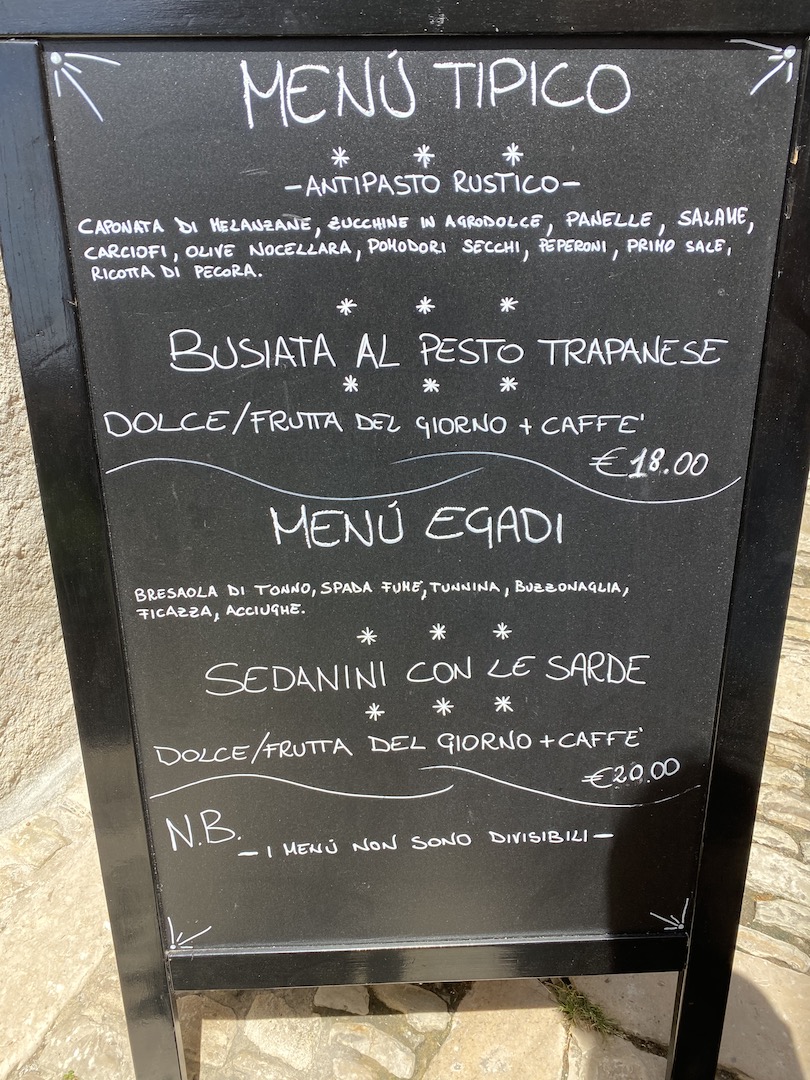 MENÚ TIPICO
* * *
-ANTIPASTO RUSTICO-
CAPONATA DI MELANZANE, ZUCCHINE IN AGRODOLCE, PANELLE, SALAME,
CARCIOFI, OLIVE NOCELLARA, POMODORI SECCHI, PEPERONI, PRIMO SALE,
RICOTTA DI PECORA.
* * *
BUSIATA AL PESTO TRAPANESE
* * *
DOLCE/FRUTTA DEL GIORNO + CAFFE'
€18.00
MENÚ EGADI
BRESAOLA DI TONNO, SPADA FUMÉ, TUNNINA, BUZZONAGLIA,
FICAZZA, ACCIUGHE.
* * *
SEDANINI CON LE SARDE
* * *
DOLCE/FRUTTA DEL GIORNO + CAFFE'
€20.00
N.B. - I MENÚ NON SONO DIVISIBILI -